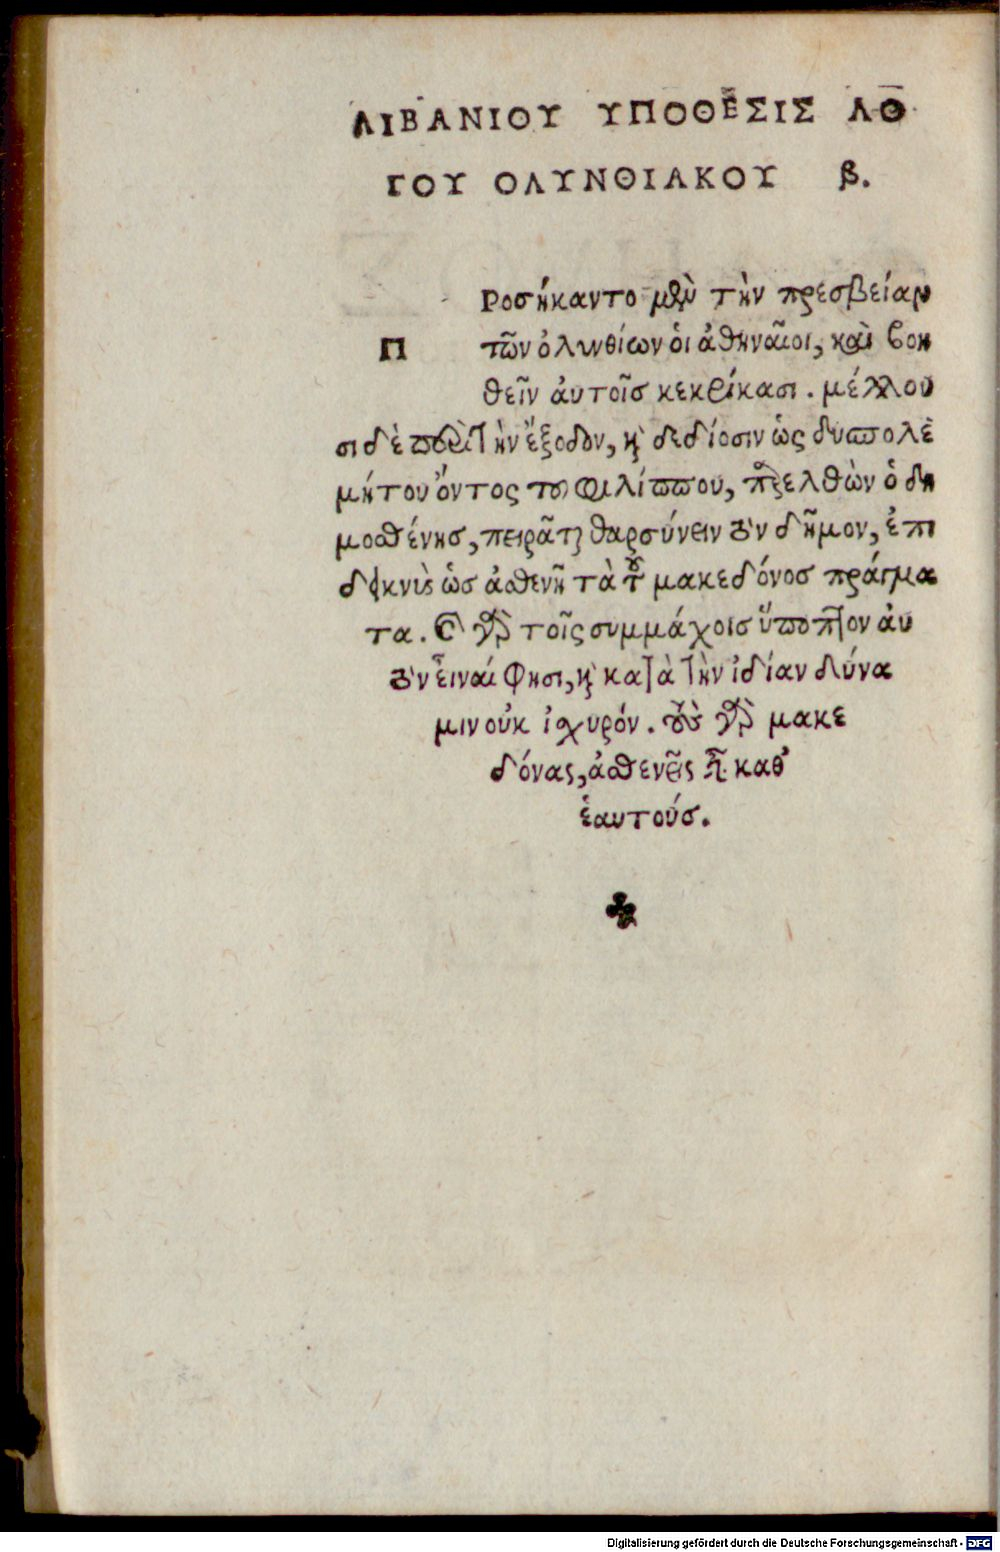 ΛΙΒΑΝΙΟΥ ΥΠΟΘΕΣΙΣ ΛΟ
ΓΟΥ ΟΛΥΝΘΙΑΚΟΥ β.
ΠΡοσήκαντο μὲν τὴν πρεσβείαν
τῶν ὀλυνθίων ὁι ἀθηναῖοι, καὶ βοη
θεῖν ἀυτοῖσ κεκρίκασι. μέλλου
σι δὲ περὶ τὴν ἔξοδον, καὶ δεδίοσιν ὡς δυσπολε
μήτου ὄντος τοῦ φιλίππου, παρελθὼν ὁ δη
μοσθένησ, πειρᾶται θαρσύνειν τὸν δῆμον, ἐπι
δεικνὺς ὡσ ἀσθενῆ τὰ τοῦ μακεδόνοσ πράγμα
τα. καὶ γὰρ τοῖς συμμάχοισ ὕποπτον ἀυ
τὸν εἶναί φησι, καὶ κατὰ τὴν ἰδίαν δύνα
μιν οὐκ ἰσχυρόν. τοὺς γὰρ μακε
δόνας, ἀσθενεῖς εἶναι καθ᾽
ἑαυτούσ.
Digitalisierung gefördert durch die Deutsche Forschungsgemeinschaft - DFG